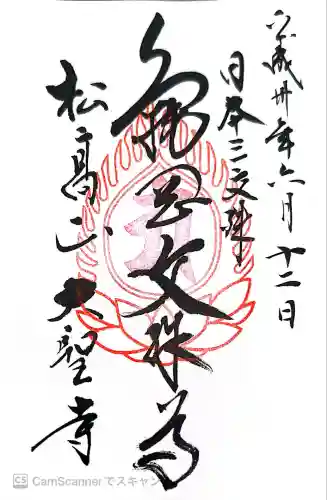 平成卅年六月十二日
日本三文殊
亀岡文殊尊
松高山大聖寺
CS CamScannerでスキャン